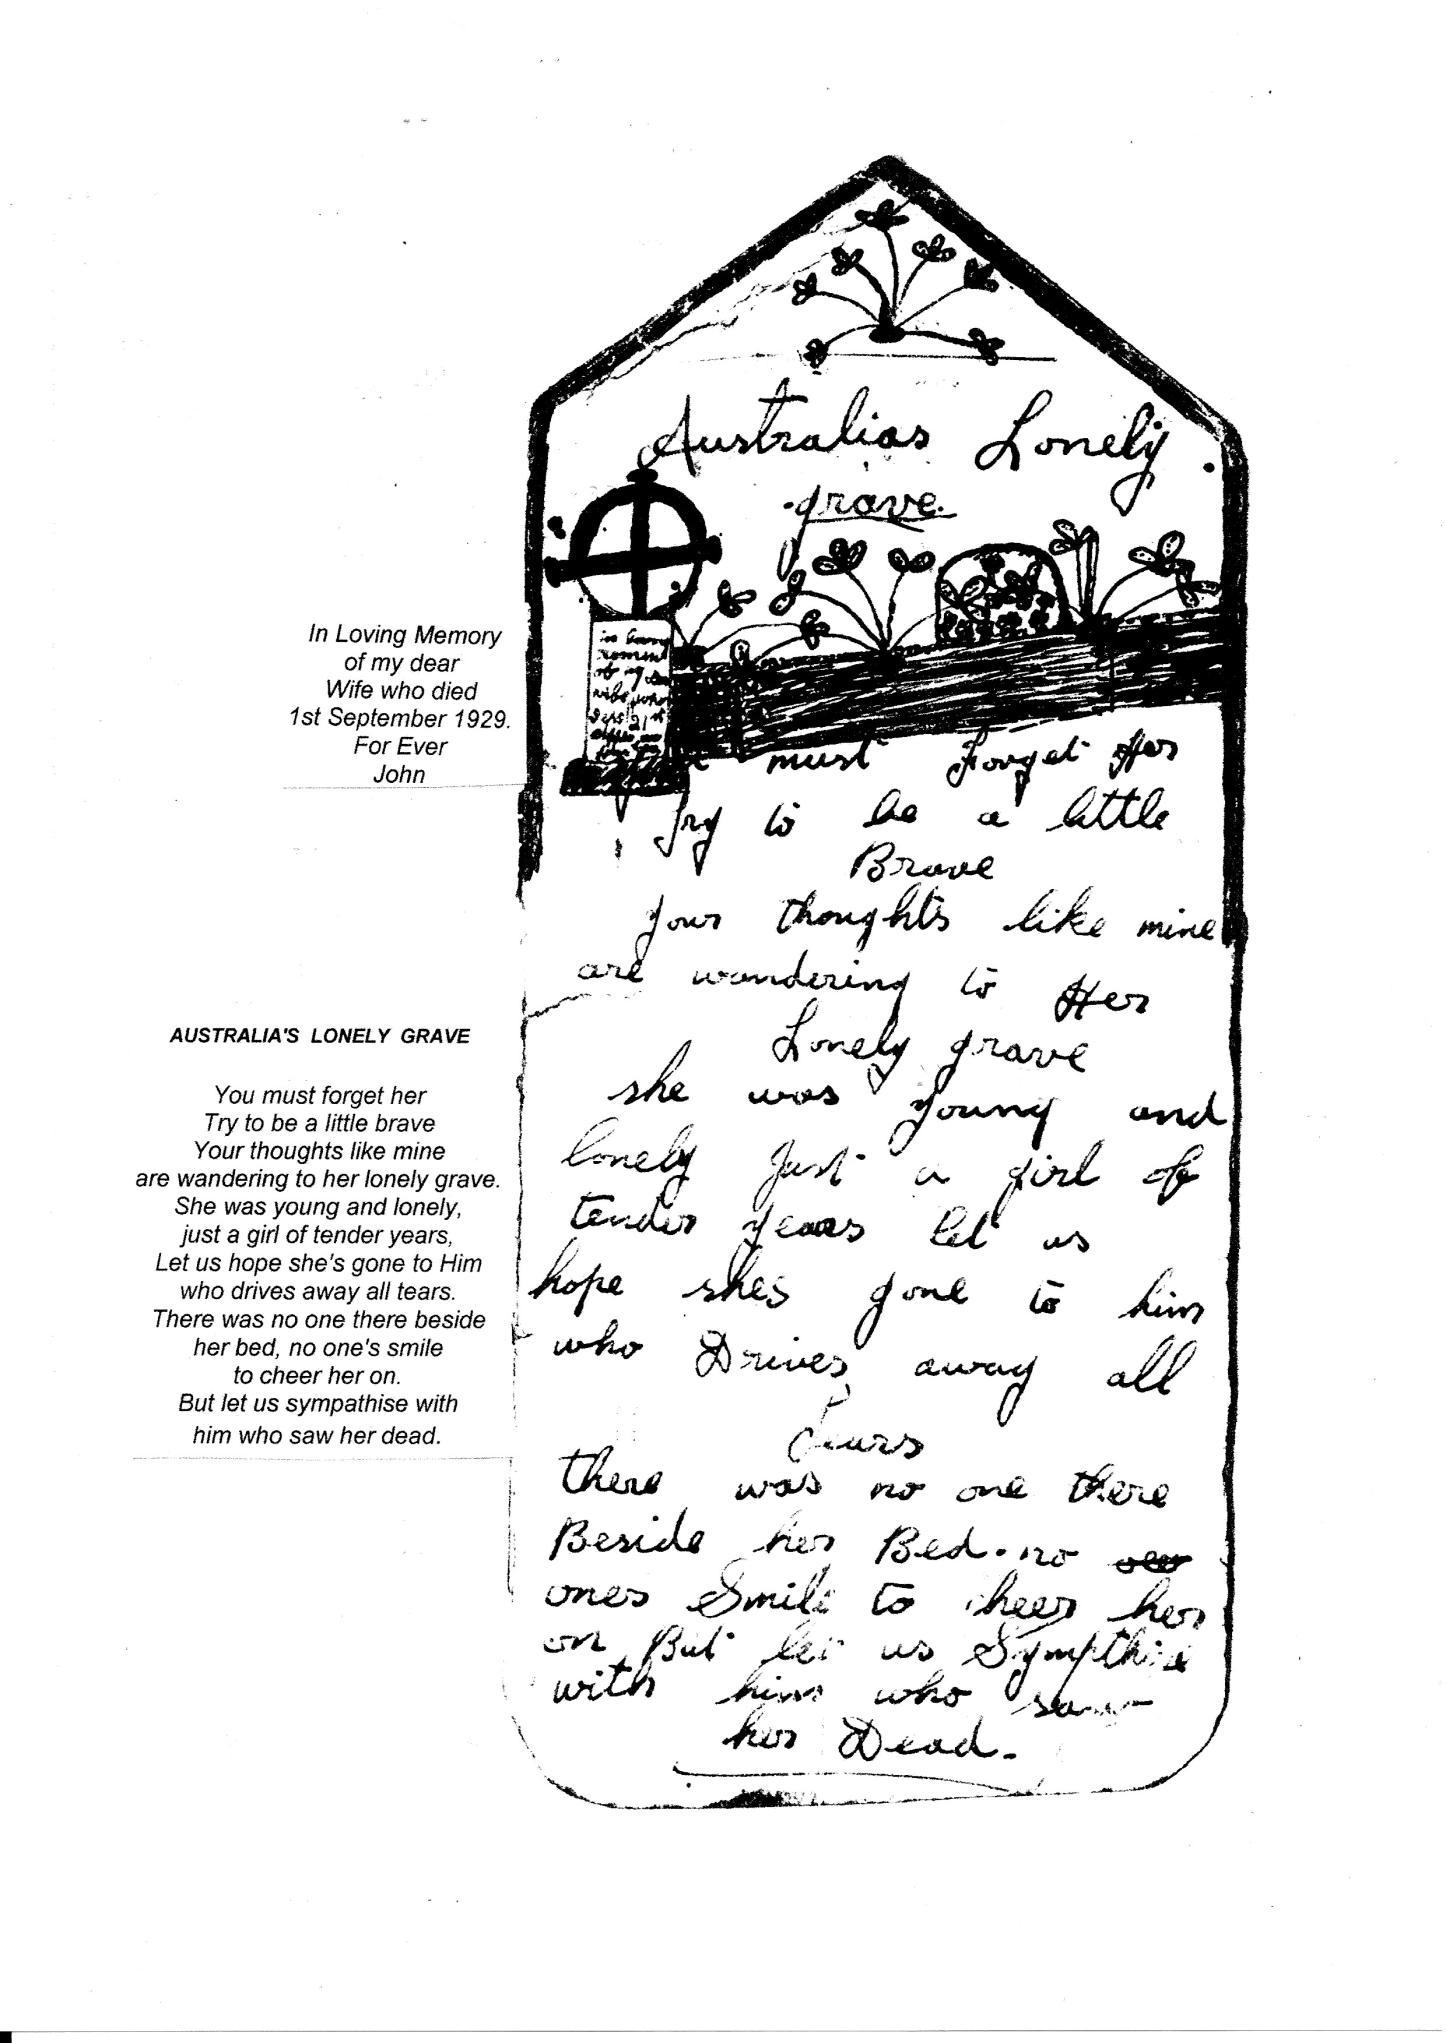 In Loving Memory
of my dear
Wife who died
1st September 1929.
For Ever
John
AUSTRALIA'S LONELY GRAVE
You must forget her
Try to be a little brave
Your thoughts like mine
are wandering to her lonely grave.
She was young and lonely,
just a girl of tender years,
Let us hope she's gone to Him
who drives away all tears.
There was no one there beside
her bed, no one's smile
to cheer her on.
But let us sympathise with
him who saw her dead.
Australias Lonely
grave.
in
of my
wife who
must Forget Her
Try to be a little
Brave
your thoughts like mine
are wandering to Her
Lonely grave
she was young and
lonely Just a girl of
tender years let us
hope shes gone to him
who Drives away all
Tears
there was no one there
Beside her Bed. no
ones Smile to cheer her
on But let us
with him who saw
her Dead.